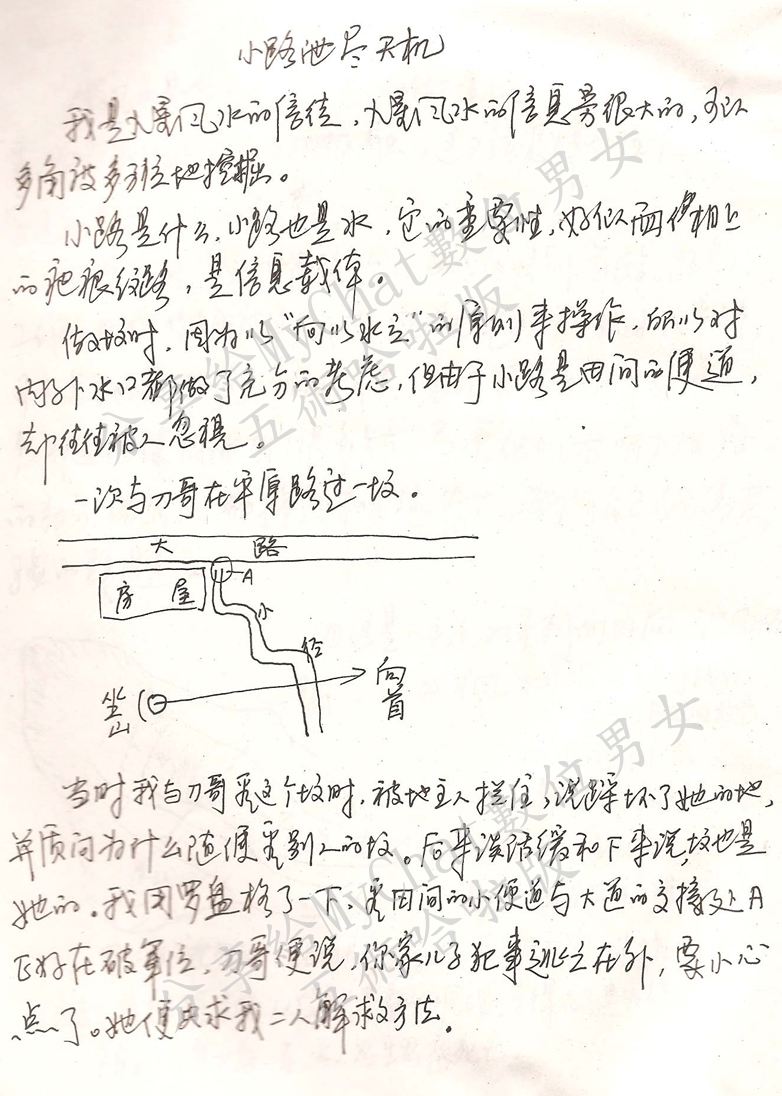 小路泄尽天机
我是八星风水的信徒，八星风水的信息量很大的，可以
多角度多方位地挖掘。
小路是什么，小路也是水，它的重要性，好似面像相上
的疤痕纹路，是信息载体。
做坟时，因为以“向以水立”的原则来操作，所以对
内外水口都做了充分的考虑，但由于小路是田间的便道，
却往往被人忽视。
一次与刀哥在平原路过一坟。
大 路
A
房 屋
小
径
坐山
向首
当时我与刀哥看这个坟时，被地主人拦住，说踩坏了她的地，
并质问为什么随便看别人的坟。后来谈话缓和下来说，坟也是
她的。我用罗盘格了一下，看田间的小便道与大道的交接处A
正好在破军位，刀哥便说，你家儿子犯事逃亡在外，要小心
点了。她便央求我二人解救方法。
分享给MyChat數位男女
五術哈啦版
分享给MyChat數位男女
五術哈啦版